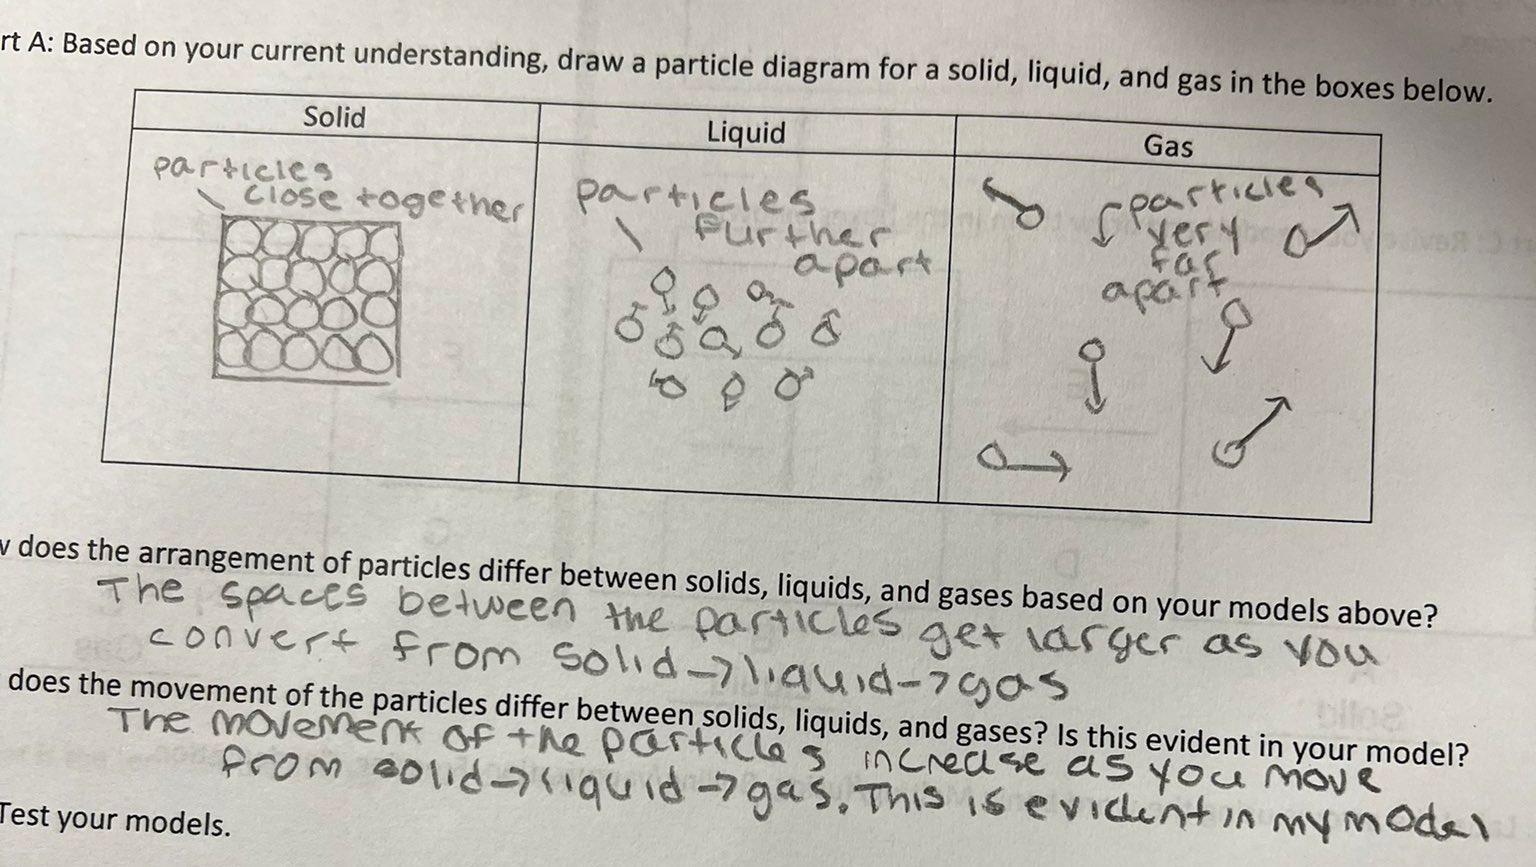 rt A: Based on your current understanding, draw a particle diagram for a solid, liquid, and gas in the boxes below.
Solid
Liquid
Gas
particles
close together
particles
further
apart
particles
very
far
apart
w does the arrangement of particles differ between solids, liquids, and gases based on your models above?
The spaces between the particles get larger as you
convert from solid→liquid→gas
does the movement of the particles differ between solids, liquids, and gases? Is this evident in your model?
The movement of the particles increase as you move
from solid→liquid→gas. This is evident in my model
Test your models.